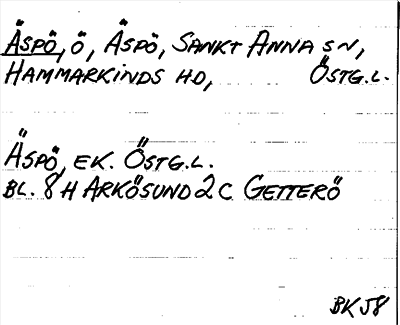 Äspö, ö, Äspö, Sankt Anna sn,
Hammarkinds hd, Östg.l.
Äspö, ek. Östg.l.
Bl. 8 H Arkösund 2 c Getterö
BKJ8